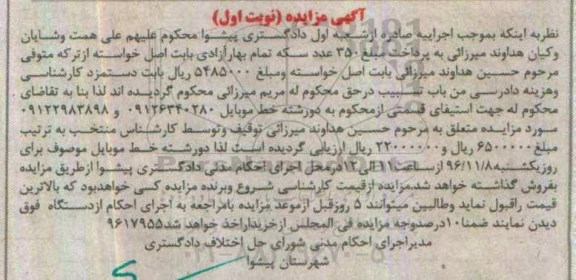 آگهی مزایده (نوبت اول)
نظر به اینکه بموجب اجراییه صادره ازشعبه اول دادگستری پیشوا محکوم علیهم علی همت وشایان
وکیان هداوند میرزائی به پرداخت مبلغ ۳۵۰ عدد سکه تمام بهارآزادی بابت اصل خواسته ازترکه متوفی
مرحوم حسین هداوند میرزائی بابت اصل خواسته ومبلغ ۵۴۸۵۰۰۰ ریال بابت دستمزد کارشناسی
وهزینه دادرسی من باب تسبیب درحق محکوم له مریم میرزائی محکوم گردیده اند لذا بنا به تقاضای
محکوم له جهت استیفای قسمتی ازمحکوم به دورشته خط موبایل ۰۹۱۲۶۳۴۰۲۸۰ و ۰۹۱۲۲۹۸۳۸۹۸
مورد مزایده متعلق به مرحوم حسین هداوند میرزائی توقیف وتوسط کارشناس منتخب به ترتیب
مبلغ ۶۵۰۰۰۰۰ ریال و ۲۲۰۰۰۰۰۰ ریال ارزیابی گردیده است لذا دورشته خط موبایل موصوف برای
روزیکشنبه ۹۶/۱۱/۸ ازساعت ۱۱ الی ۱۲ درمحل اجرای احکام مدنی دادگستری پیشوا ازطریق مزایده
بفروش گذاشته خواهد شد.مزایده ازقیمت کارشناسی شروع وبرنده مزایده کسی خواهدبود که بالاترین
قیمت راقبول نماید وطالبین میتوانند ۵ روزقبل ازموعد مزایده بامراجعه به اجرای احکام ازدستگاه فوق
دیدن نمایند ضمنا ۱۰ درصدوجه مزایده فی المجلس ازخریداراخذ خواهد شد ۹۶۱۷۹۵۵
مدیراجرای احکام مدنی شورای حل اختلاف دادگستری
شهرستان پیشوا